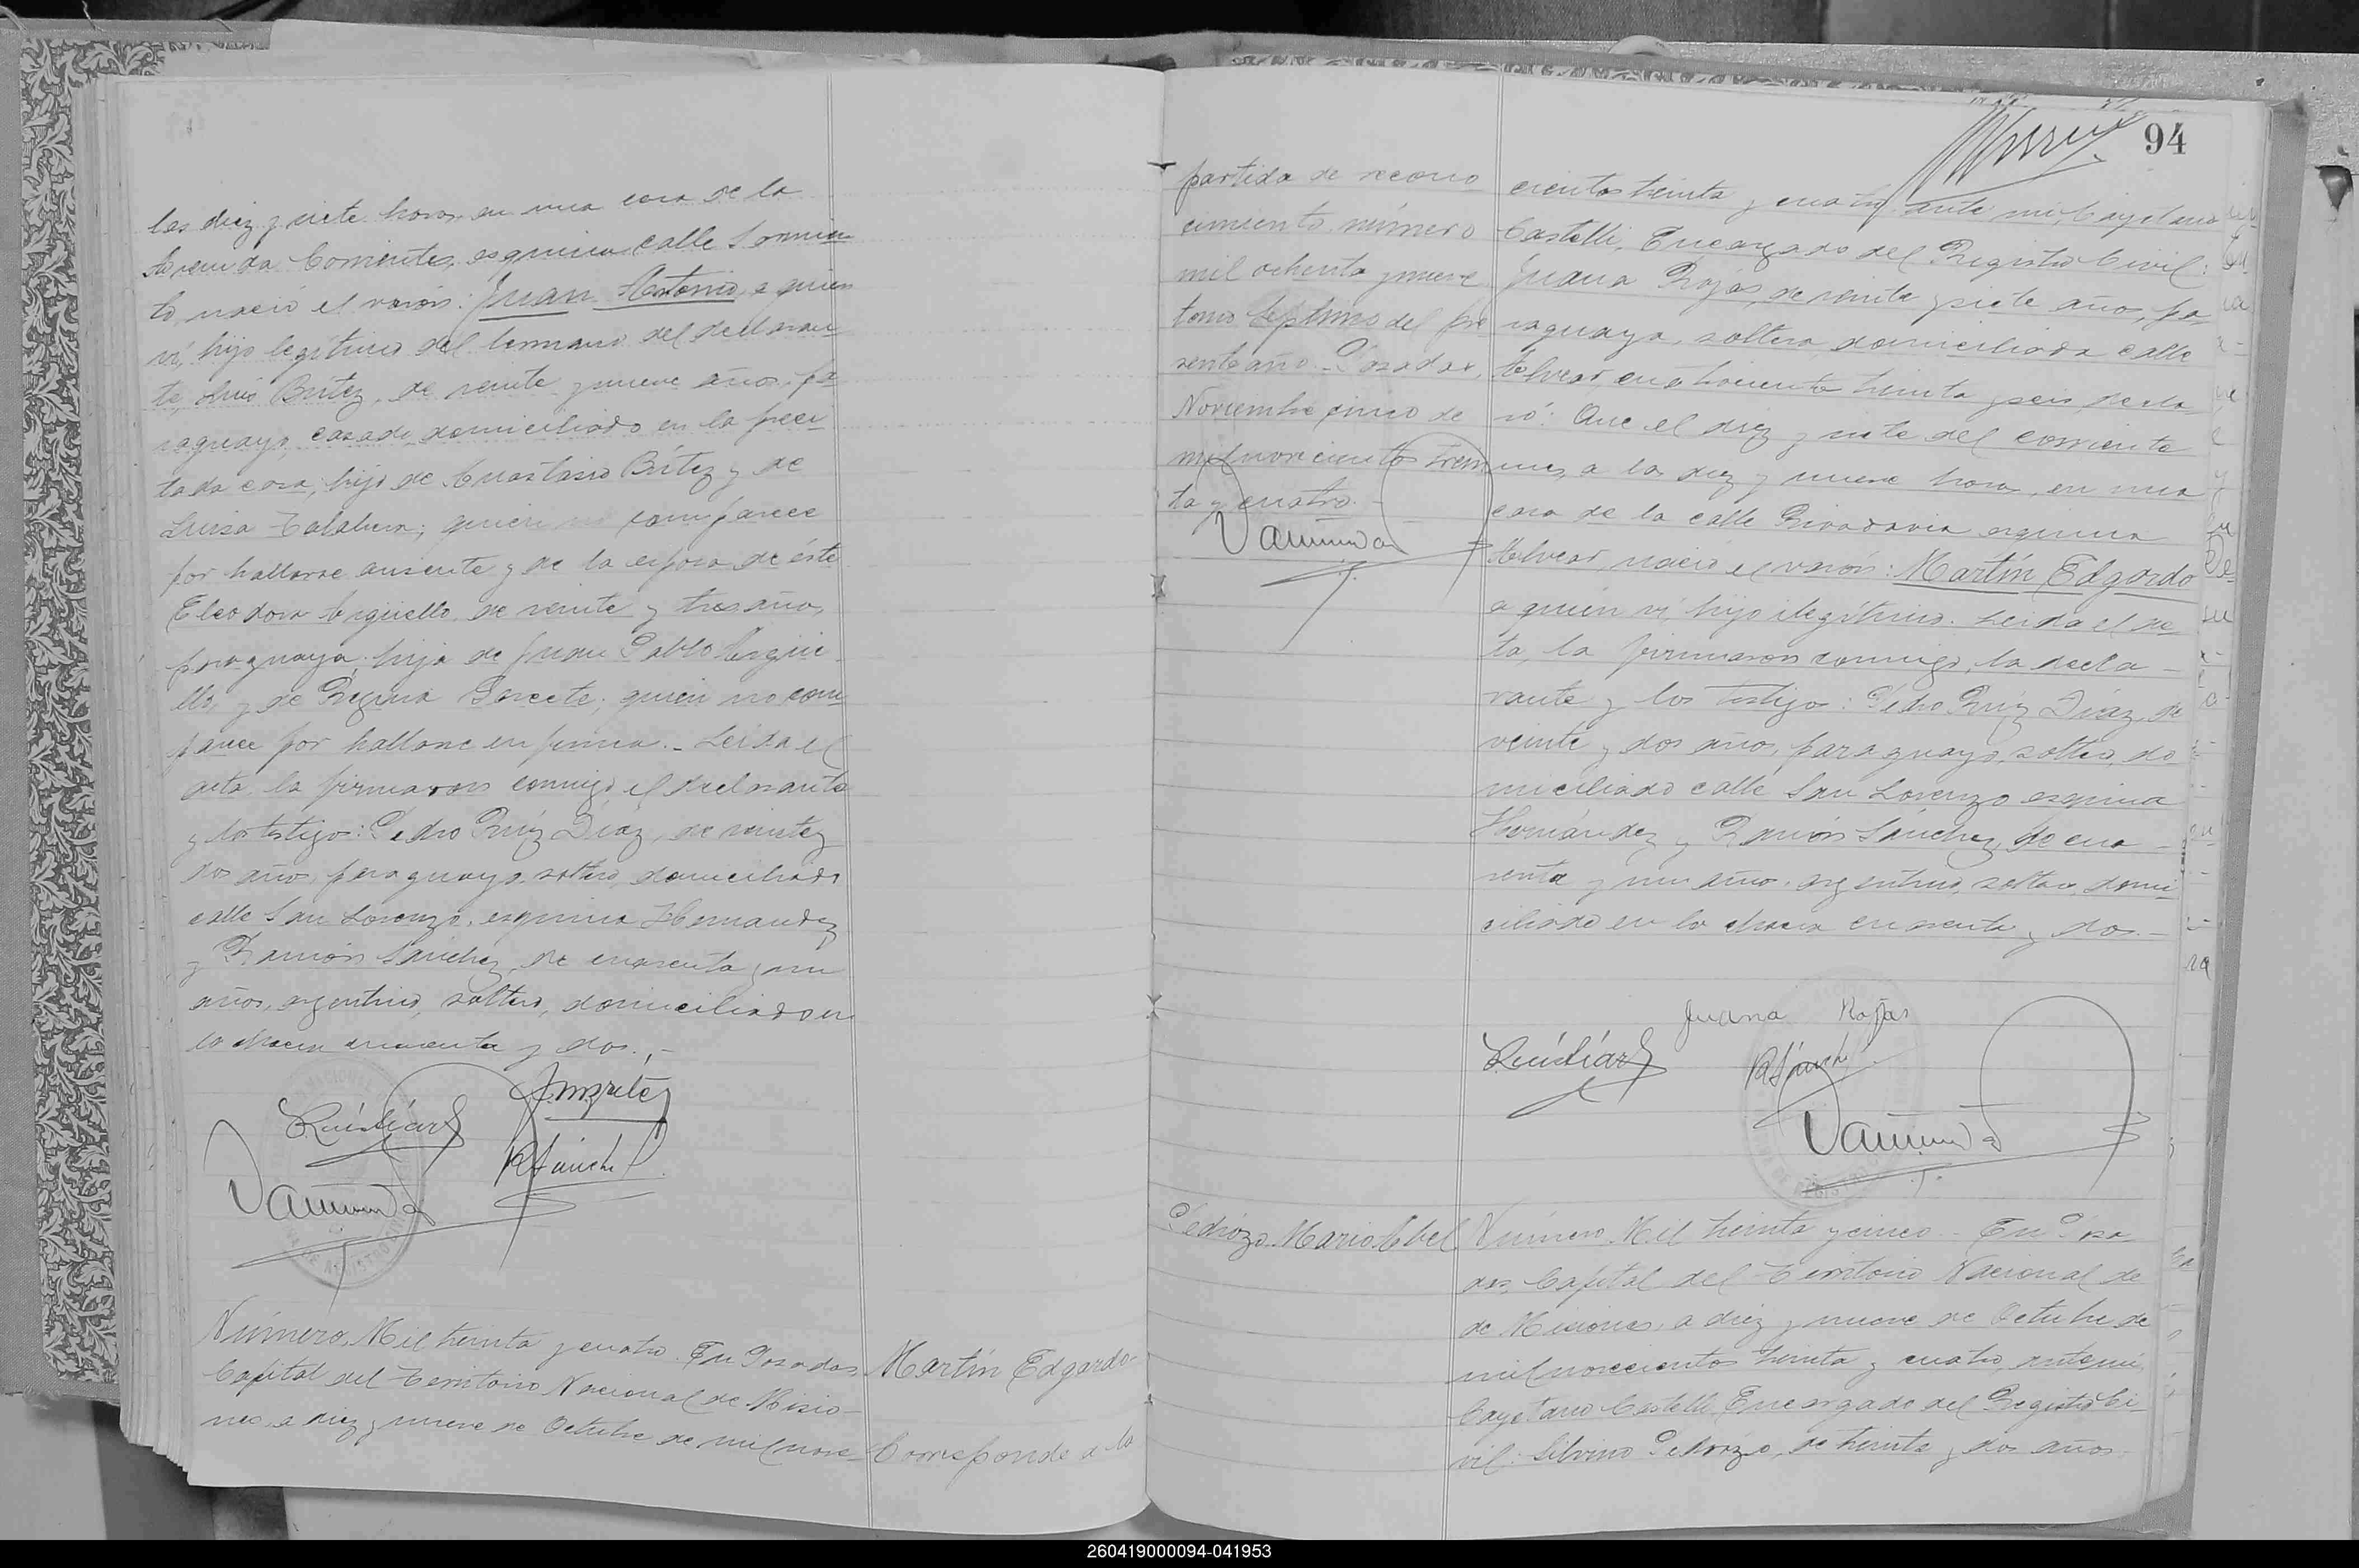 las diez y siete horas, en una casa de la
Avenida Corrientes, esquina calle Sarmien
to, nació el varón: Juan Antonio, a quien
ví, hijo legítimo del hermano del declaran
te, Luis Brítez, de veinte y nueve años, pa
raguayo, casado, domiciliado en la preci
tada casa; hijo de Anastasio Brítez y de
Luisa Talabera; quien no comparece
por hallarse ausente y de la esposa de éste
Eleodora Argüello, de veinte y tres años,
paraguaya, hija de Juan Pablo Argüe
llo, y de Regina; quien no com
parece por hallarse enferma.- Leída el
acta, la firmaron conmigo, el declarante
y los testigos: Pedro Ruíz Díaz, de veinte y
dos años, paraguayo, soltero, domiciliado
calle San Lorenzo, esquina Hernandez
y Ramón Sánchez, de cuarenta y un
años, argentino, soltero, domiciliado en
la chacra cincuenta y dos.-
Ruíz Díaz
RSánche
Número, Mil treinta y cuatro. En Posadas
Capital del Territorio Nacional de Misio-
nes, a diez y nueve de Octubre de mil nove-
Martín Edgardo
Corresponde a la
94
partida de recono
cimiento, número
mil ochenta y nueve
tomo septimo del pre
sente año.- Posadas,
Noviembre cinco de
mil novecientos trein
ta y cuatro.-
cientos treinta y cuatro, ante mi, Cayetano
Castelli, Encargado del Registro Civil:
Juana Rojas, de veinte y siete años, pa-
raguaya, soltera, domiciliada calle
Alvear, cuatrocientos treinta y seis, decla-
ró: Que el diez y siete del corriente
mes, a las diez y nueve horas, en una
casa de la calle Rivadavia esquina
Alvear, nació el varón: Martín Edgardo
a quien ví, hijo ilegítimo. Leida el ac-
ta, la firmaron conmigo, la decla-
rante y los testigos: Pedro Ruíz Díaz, de
veinte y dos años, paraguayo, soltero, do
miciliado calle San Lorenzo esquina
Hernández y Ramón Sánchez, de cua-
renta y un años, argentino, soltero, domi
ciliado en la chacra cincuenta y dos.-
Juana Rojas
Ruíz Díaz
RSánche
Pedrózo Mario Abel
Número, Mil treinta y cinco.- En Posa-
das, Capital del Territorio Nacional de
de Misiones, a diez y nueve de Octubre de
mil novecientos treinta y cuatro, ante mi,
Cayetano Castelli, Encargado del Registro Ci-
vil: Silvino Pedrózo, de treinta y dos años
260419000094-041953